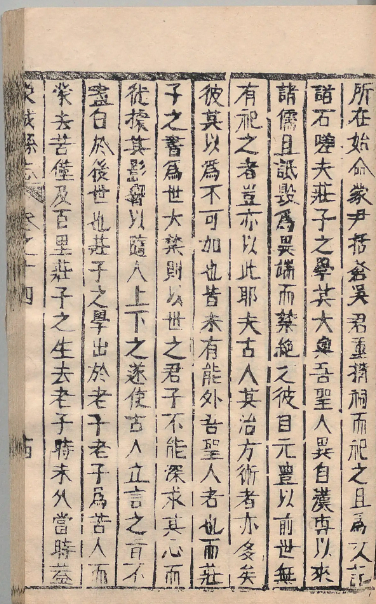 所在始命蒙尹括蒼吳君重搆祠而祀之且爲文記
諸石嗟夫莊子之學其大與吾聖人異自漢專以來
諸儒且詆毀爲異端而禁絕之彼目元豊以前世無
有祀之者豈亦以此耶夫古人其治方術者亦多矣
彼其以爲不可加也皆未有能外吾聖人者也而莊
子之書爲世大禁則以世之君子不能深求其心而
徒據其影響以臨人上下之遂使古人立言之旨不
盡白於後世也莊子之學出於老子老子爲苦人而
蒙去苦僅及百里莊子之生去老子時未久當時蓋
縣志 卷之十四